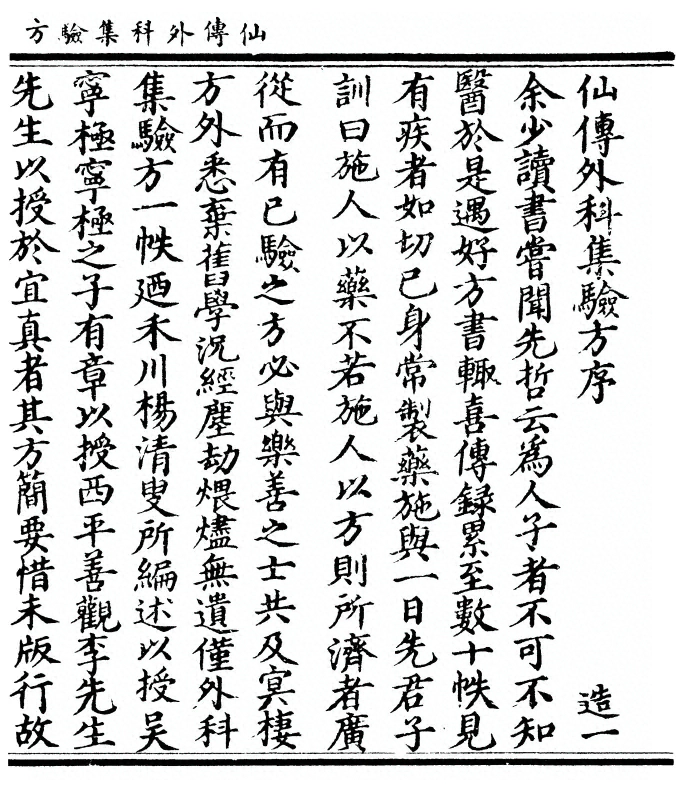 仙傳外科集驗方
仙傳外科集驗方序 造一
余少讀書嘗聞先哲云為人子者不可不知
醫於是遇好方書輙喜傳録累至數十帙見
有疾者如切已身常製藥施與一日先君子
訓曰施人以藥不若施人以方則所濟者廣
從而有已驗之方必與樂善之士共及㝠棲
方外悉棄舊學況經塵劫煨燼無遺僅外科
集驗方一帙廼禾川楊清叟所編述以授吴
寧極寧極之子有章以授西平善觀李先生
先生以授於宜真者其方簡要惜未版行故